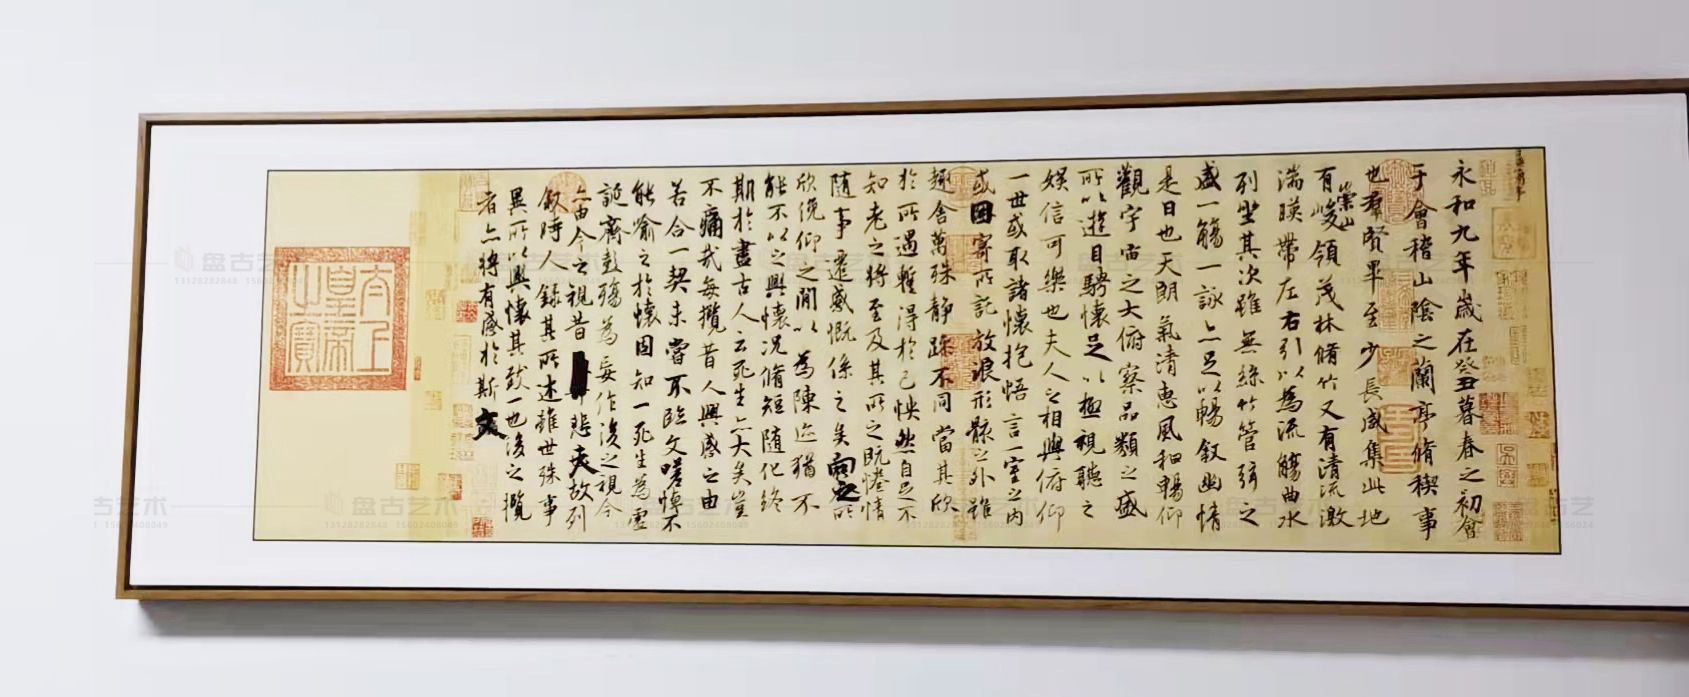 永和九年歲在癸丑暮春之初會
于會稽山陰之蘭亭脩稧事
也羣賢畢至少長咸集此地
有崇山峻領茂林脩竹又有清流激
湍暎帶左右引以為流觴曲水
列坐其次雖無絲竹管弦之
盛一觴一詠亦足以暢叙幽情
是日也天朗氣清惠風和暢仰
觀宇宙之大俯察品類之盛
所以遊目騁懷足以極視聽之
娛信可樂也夫人之相與俯仰
一世或取諸懷抱悟言一室之內
或因寄所託放浪形骸之外雖
趣舍萬殊靜躁不同當其欣
於所遇暫得於己怏然自足不
知老之將至及其所之既惓情
隨事遷感慨係之矣向之所
欣俛仰之閒以為陳迹猶不
能不以之興懷況脩短隨化終
期於盡古人云死生亦大矣豈
不痛哉每攬昔人興感之由
若合一契未嘗不臨文嗟悼不
能喻之於懷固知一死生為虛
誕齊彭殤為妄作後之視今
亦由今之視昔悲夫故列
叙時人錄其所述雖世殊事
異所以興懷其致一也後之攬
者亦將有感於斯文
太上
皇帝
之寶
盤古藝术
13128282848
15602408049